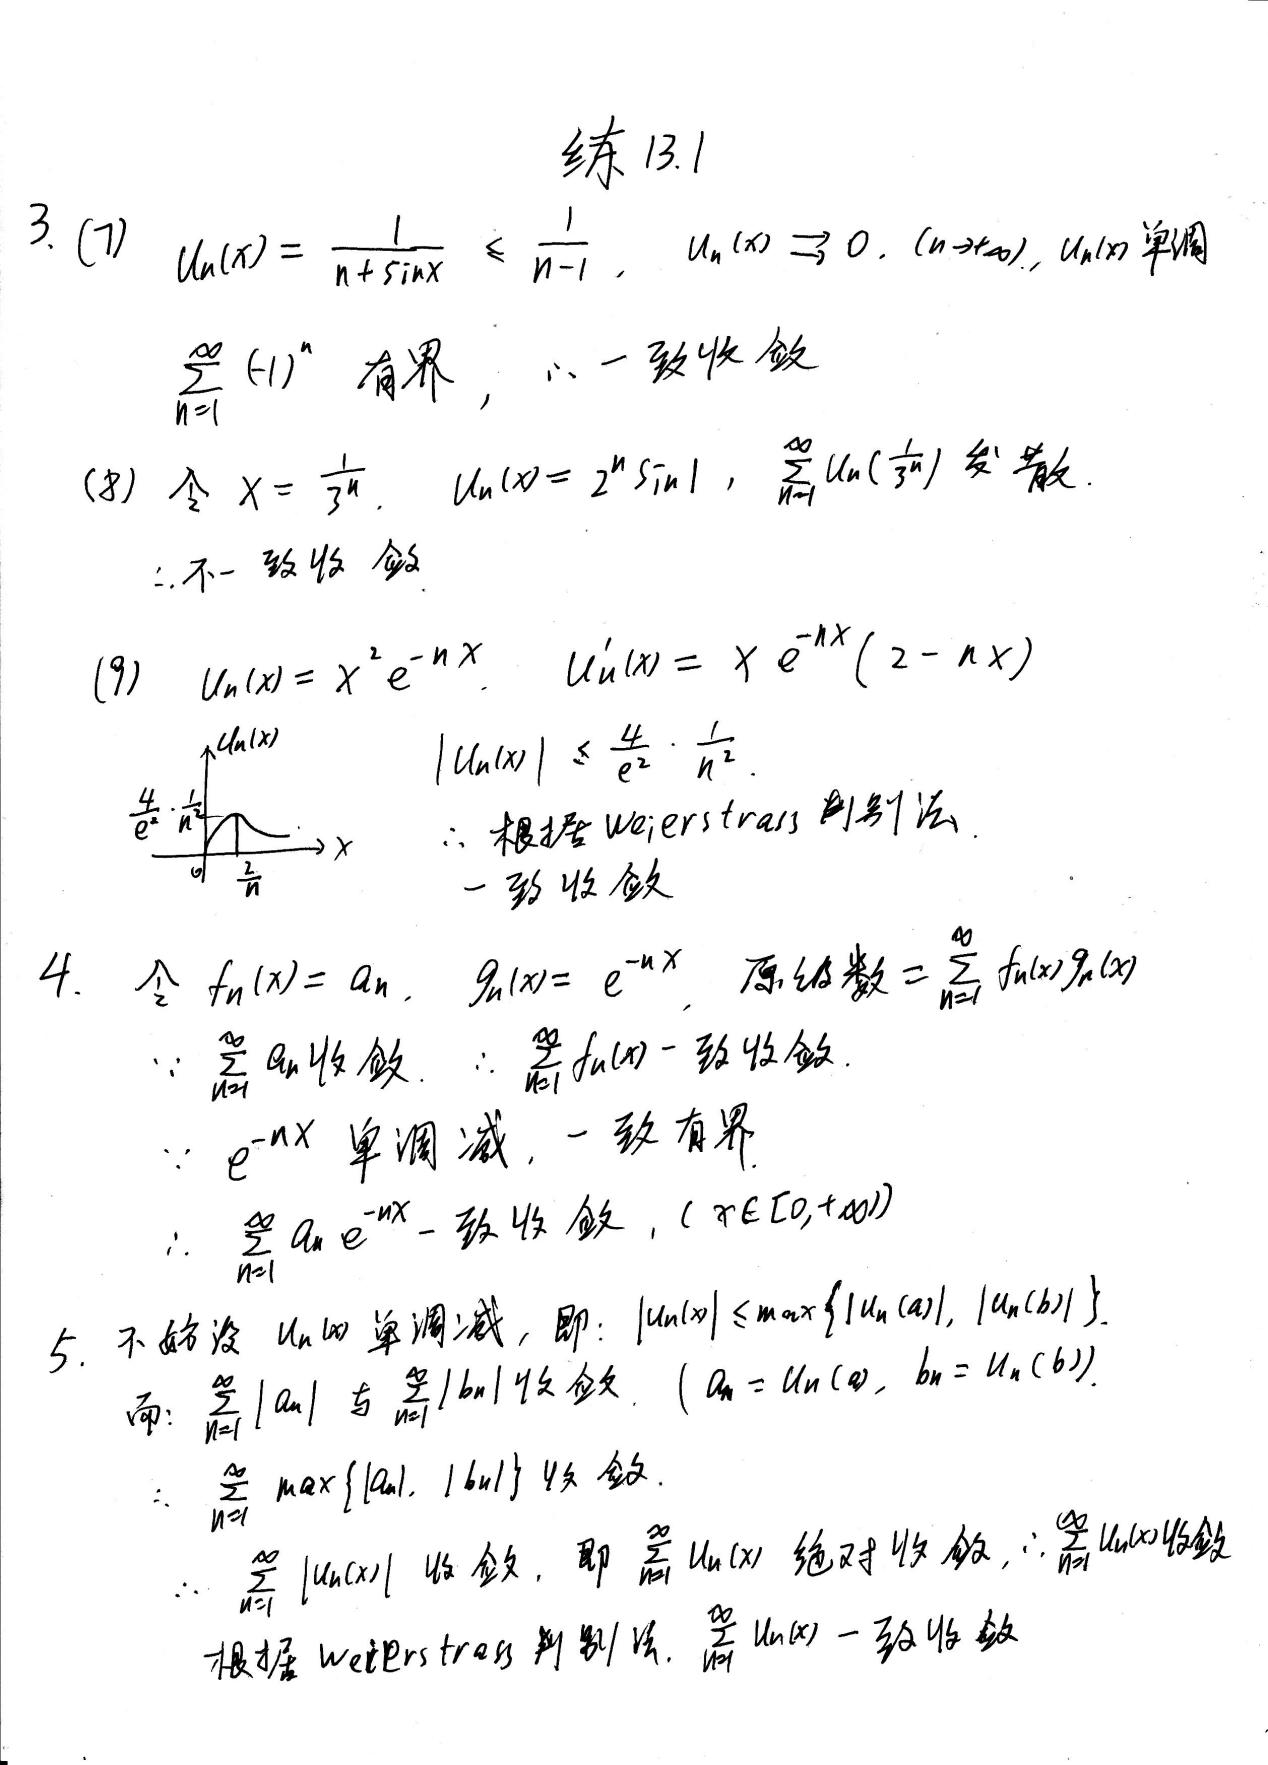 练 13.1
3. (7) Un(x) = 1/(n+sinx) ≤ 1/(n-1), Un(x) ⇉ 0. (n→+∞), Un(x) 单调
∑_{n=1}^{∞} (-1)^n 有界, ∴ 一致收敛
(8) 令 x = 1/3^n. Un(x) = 2^n sin1, ∑_{n=1}^{∞} Un(1/3^n) 发散.
∴ 不一致收敛.
(9) Un(x) = x^2 e^{-nx}. Un'(x) = x e^{-nx} (2 - nx)
Un(x)
4/e^2 · 1/n^2
0
2/n
x
|Un(x)| ≤ 4/e^2 · 1/n^2.
∴ 根据 Weierstrass 判别法.
一致收敛
4. 令 fn(x) = an, gn(x) = e^{-nx}, 原级数 = ∑_{n=1}^{∞} fn(x)gn(x)
∵ ∑_{n=1}^{∞} an 收敛. ∴ ∑_{n=1}^{∞} fn(x) 一致收敛.
∵ e^{-nx} 单调减, 一致有界.
∴ ∑_{n=1}^{∞} an e^{-nx} 一致收敛, (x∈[0,+∞))
5. 不妨设 Un(x) 单调减, 即: |Un(x)| ≤ max{|Un(a)|, |Un(b)|}.
而: ∑_{n=1}^{∞} |an| 与 ∑_{n=1}^{∞} |bn| 收敛. (an = Un(a), bn = Un(b)).
∴ ∑_{n=1}^{∞} max{|an|, |bn|} 收敛.
∴ ∑_{n=1}^{∞} |Un(x)| 收敛, 即 ∑_{n=1}^{∞} Un(x) 绝对收敛, ∴ ∑_{n=1}^{∞} Un(x) 收敛
根据 Weierstrass 判别法. ∑_{n=1}^{∞} Un(x) 一致收敛